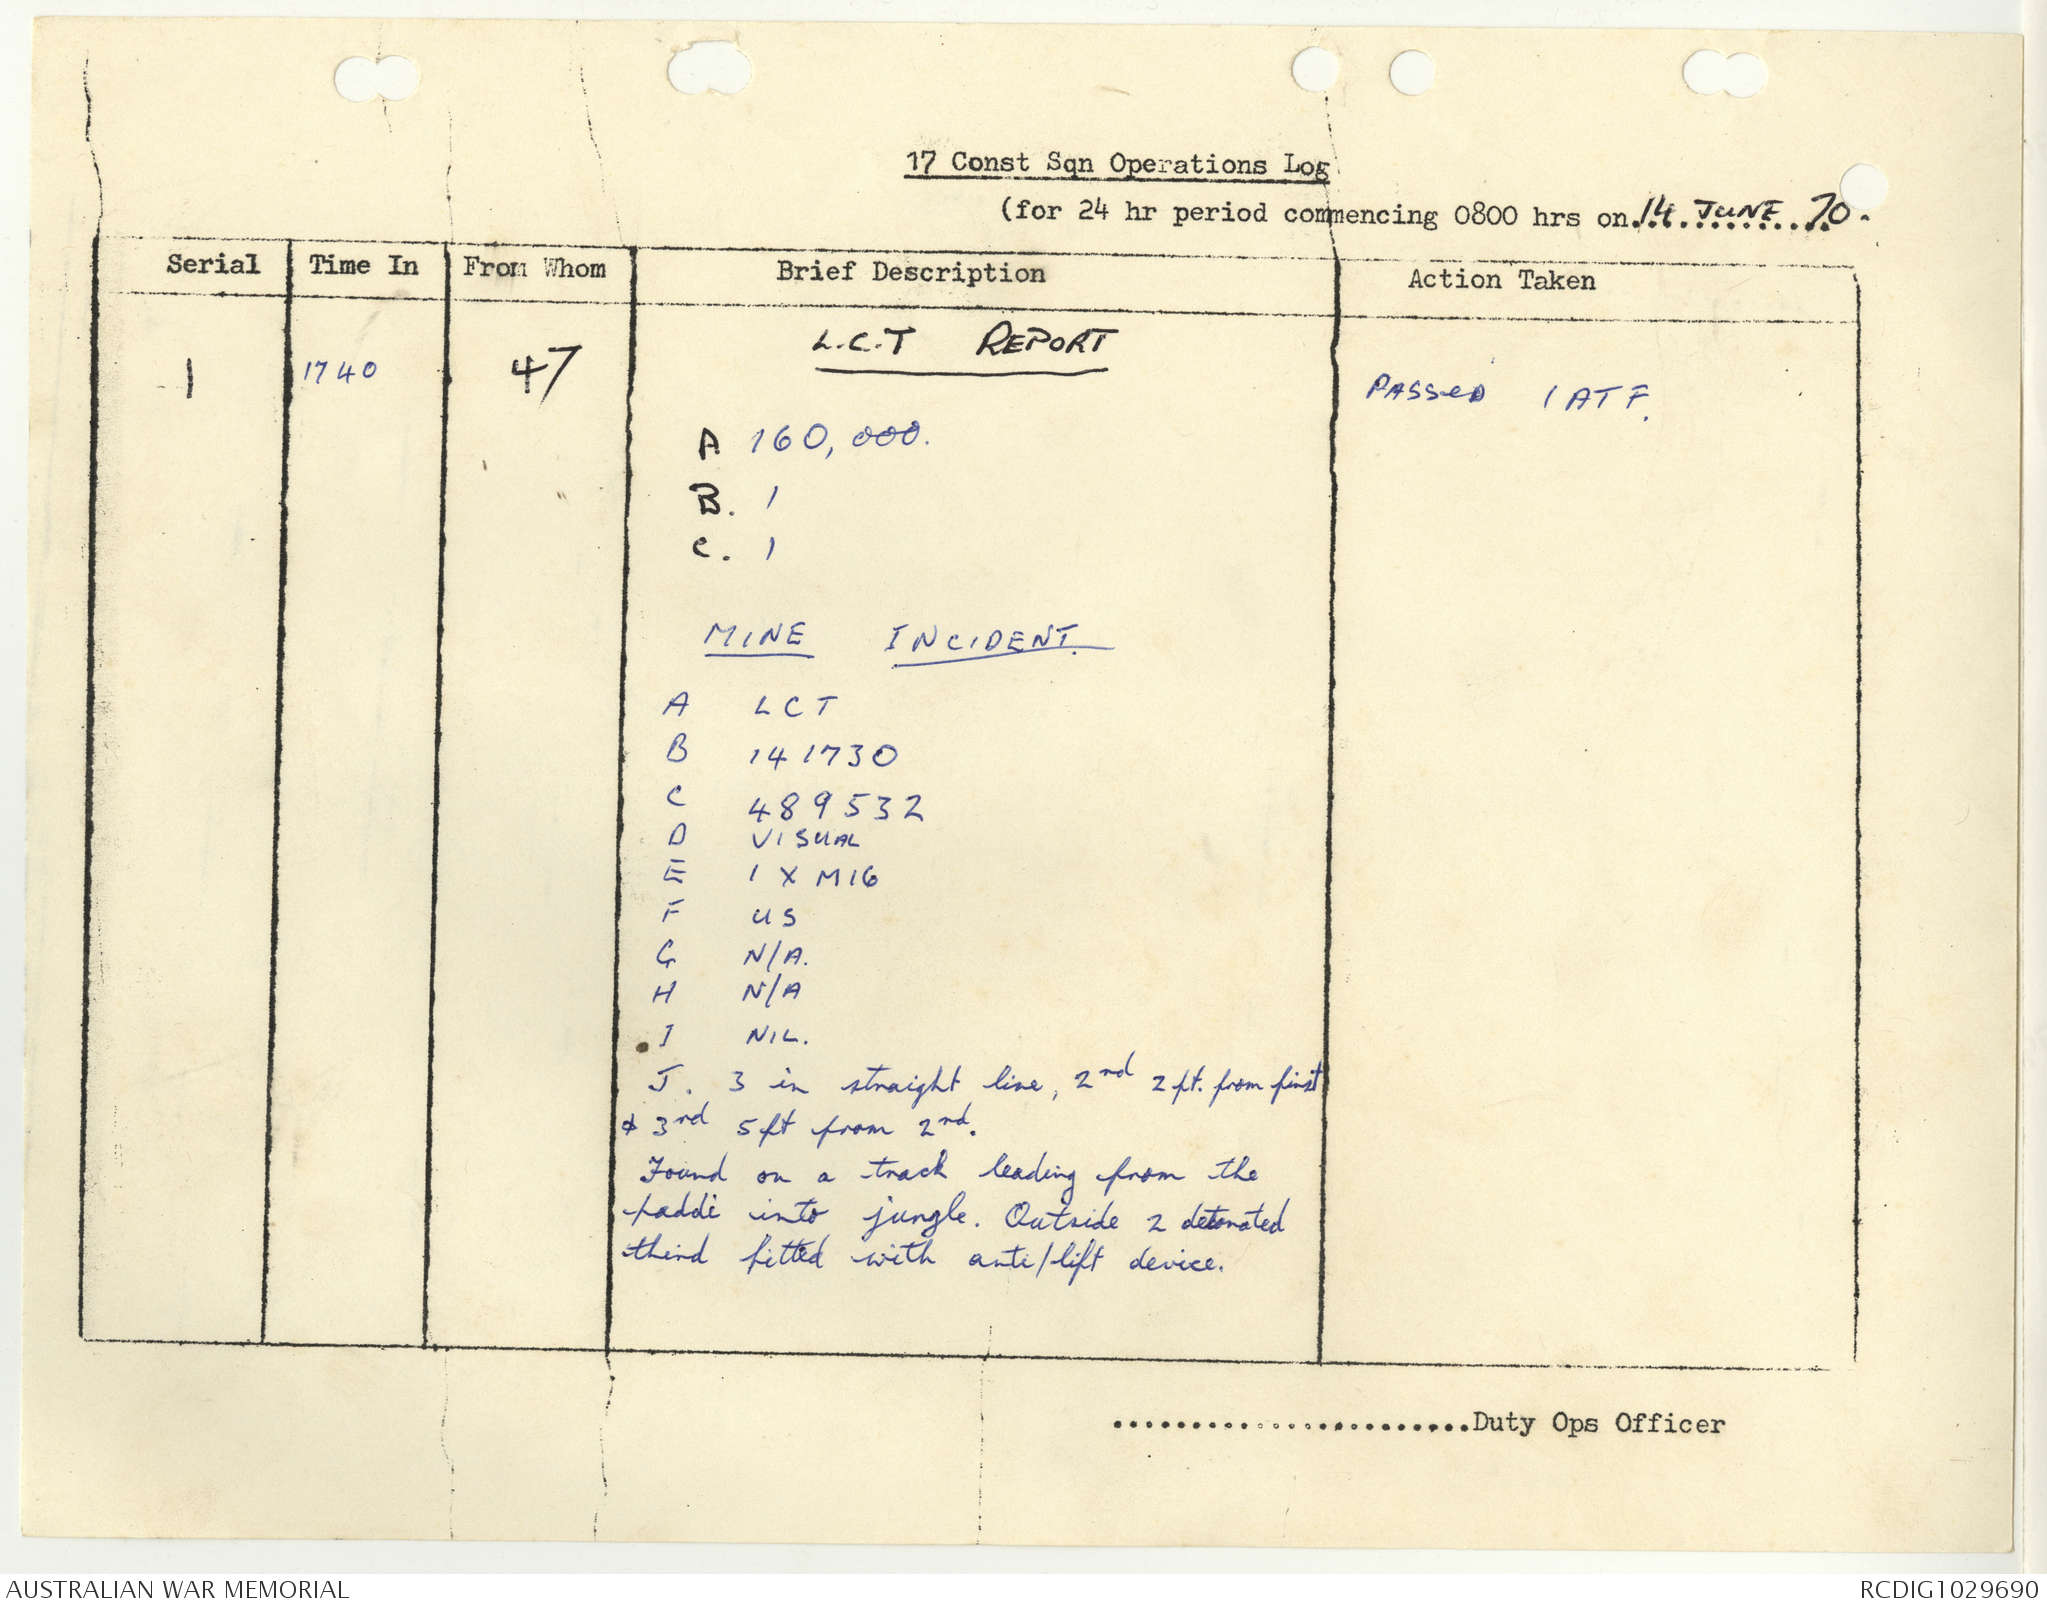 17 Const Sqn Operations Log
(for 24 hr period commencing 0800 hrs on 14 JUNE 70.
Serial Time In From Whom Brief Description Action Taken
L.C.T REPORT
1 1740 47 PASSED 1 ATF.
A 160,000.
B. 1
C. 1
MINE INCIDENT.
A LCT
B 141730
C 489532
D VISUAL
E 1 X M16
F US
G N/A.
H N/A
I NIL.
J. 3 in straight line, 2nd 2 ft. from first
& 3rd 5ft from 2nd.
Found on a track leading from the
paddi into jungle. Outside 2 detonated
third fitted with anti/lift device.
.......................Duty Ops Officer
AUSTRALIAN WAR MEMORIAL RCDIG1029690